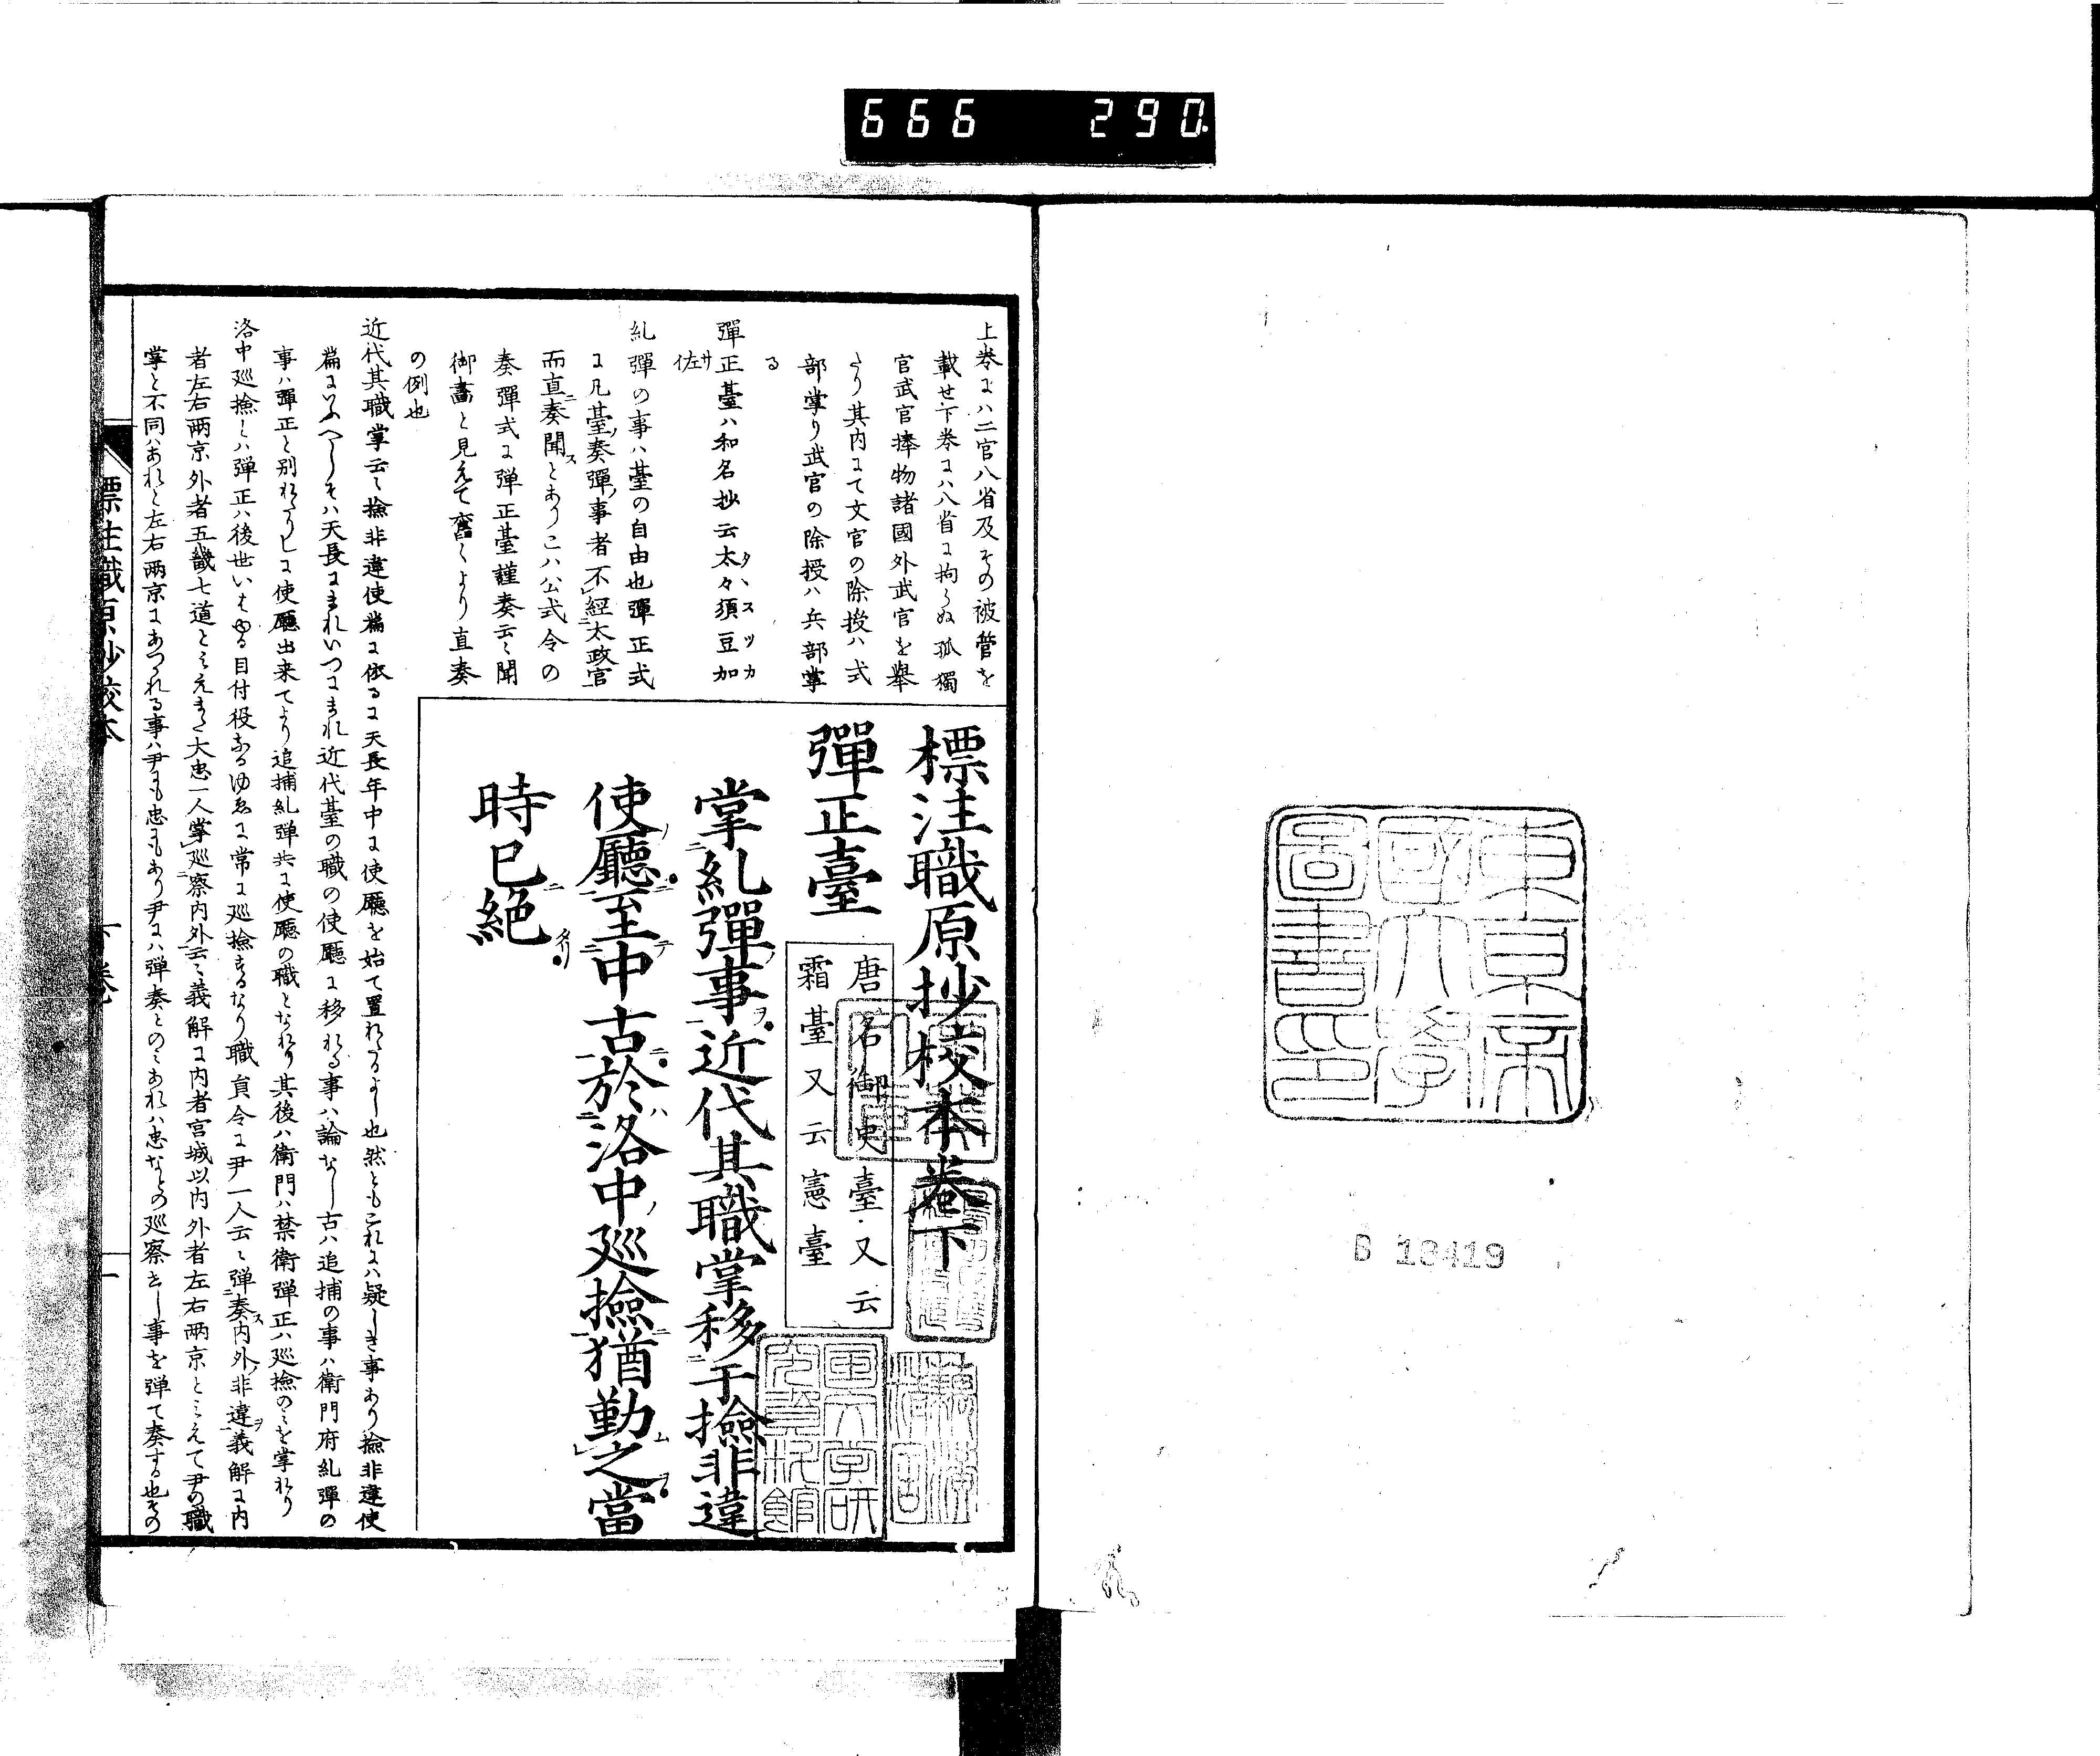 666 290.
東京帝
國大學
圖書印
B 18419
上巻には二官八省及その被管を
載せ下巻には八省に拘らぬ孤獨
官武官捧物諸國外武官を舉
たり其内にて文官の除授ハ式
部掌り武官の除授ハ兵部掌
る
彈正臺ハ和名抄云太々須豆加
佐
糺彈の事ハ臺の自由也彈正式
に凡臺奏彈事者不經太政官
而直奏聞とありこハ公式令の
奏彈式に弾正臺謹奏云々聞
御畵と見えて舊くより直奏
の例也
標注職原抄校本巻下
彈正臺
唐名御史臺又云
霜臺又云憲臺
掌糺彈事近代其職掌移于撿非違
使廳云至中古於洛中巡撿猶勤之當
時已絶
近代其職掌云々撿非違使篇に依るに天長年中に使廳を始て置れるよし也然ともこれには疑しき事あり撿非違使
篇にいふへしそハ天長にまれいつにまれ近代臺の職の使廳に移れる事ハ論なし古ハ追捕の事ハ衛門府糺彈の
事ハ彈正と別れたりしに使廳出来てより追捕糺弾共に使廳の職となれり其後ハ衛門ハ禁衛弾正ハ巡撿のミを掌れり
洛中巡撿とハ弾正ハ後世いはゆる目付役なるゆゑに常に巡撿するなり職員令に尹一人云々弾奏内外非違義解に内
者左右兩京外者五畿七道とみえまた大忠一人掌巡察内外云々義解に内者宮城以内外者左右兩京とみえて尹の職
掌と不同ハあれと左右兩京にあつかれる事ハ尹にも忠にもあり尹にハ弾奏とのミあれハ忠なとの巡察せし事を弾て奏する也その
標注職原抄校本
下巻
一